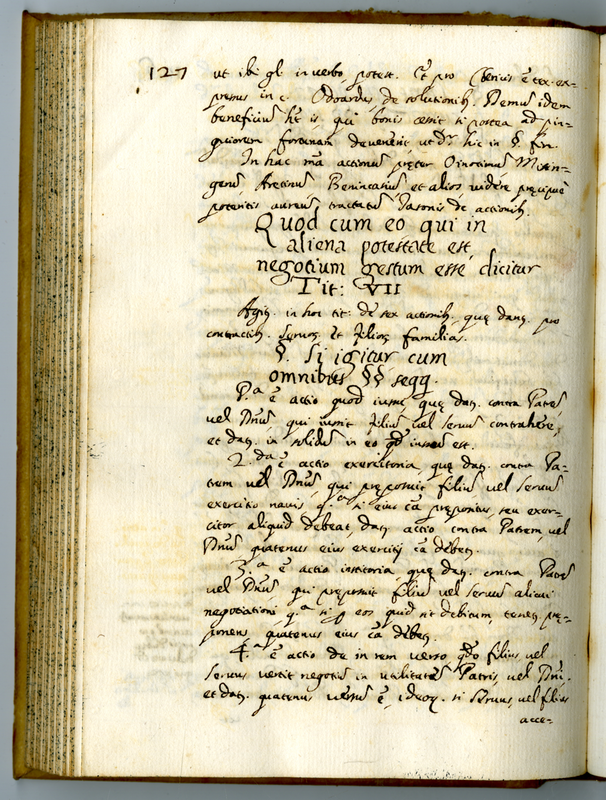 127
ut ibi gl. in verbo, potest. Et pro Clericis ē tex. ex-
pressus in c. Odoardus de solutionib. Demū idem
beneficiū ht is, qui bonis cessit si postea ad pin-
guiorem fortunam devenerit, ut dr hic in §. fin.
In hac mā actionum pręter Oinotomū Misin-
gerū, Aretinū Benincasiū et alios videre pręcipuè
poteritis aureū tractatū Iasonis de actionib.
Quod cum eo qui in
aliena potestate est,
negotium gestum esse dicitur
Tit: VII
Agit. in hoc tit: de sex actionib. quę dant. pro
contractib. Servor. et filior. familias.
§. Si igitur cum
omnibus §§ segg.
P.a ē actio quod iussu, quę dat. contra Patrē,
vel Dnū, qui iussit filiū vel servū contrahere,
et dat. in solidū in eo qd iussū est.
2.da ē actio exercitoria, quę dat. contra Pa-
trem vel Dnū, qui pręposuit filiū vel servū
exercitio navis q.a si eius cā prępositus, seu exer-
citor aliquid debeat, dat. actio contra Patrem, vel
Dnū quatenus eius exercitij cā debet.
3.a ē actio institoria, quę dat. contra Patrē
vel Dnū, qui pręposuit filiū vel servū alicui
negotiationi q.a si p eos quid sit debitum, tenet. pre-
ponens, quatenus eius cā debet.
4.a ē actio de in rem verso qdo filius, vel
servus vertit negotiū in utilitatē Patris, vel Dni.
et dat. quatenus versū ē, ideoq. si servus, vel filius
acce-